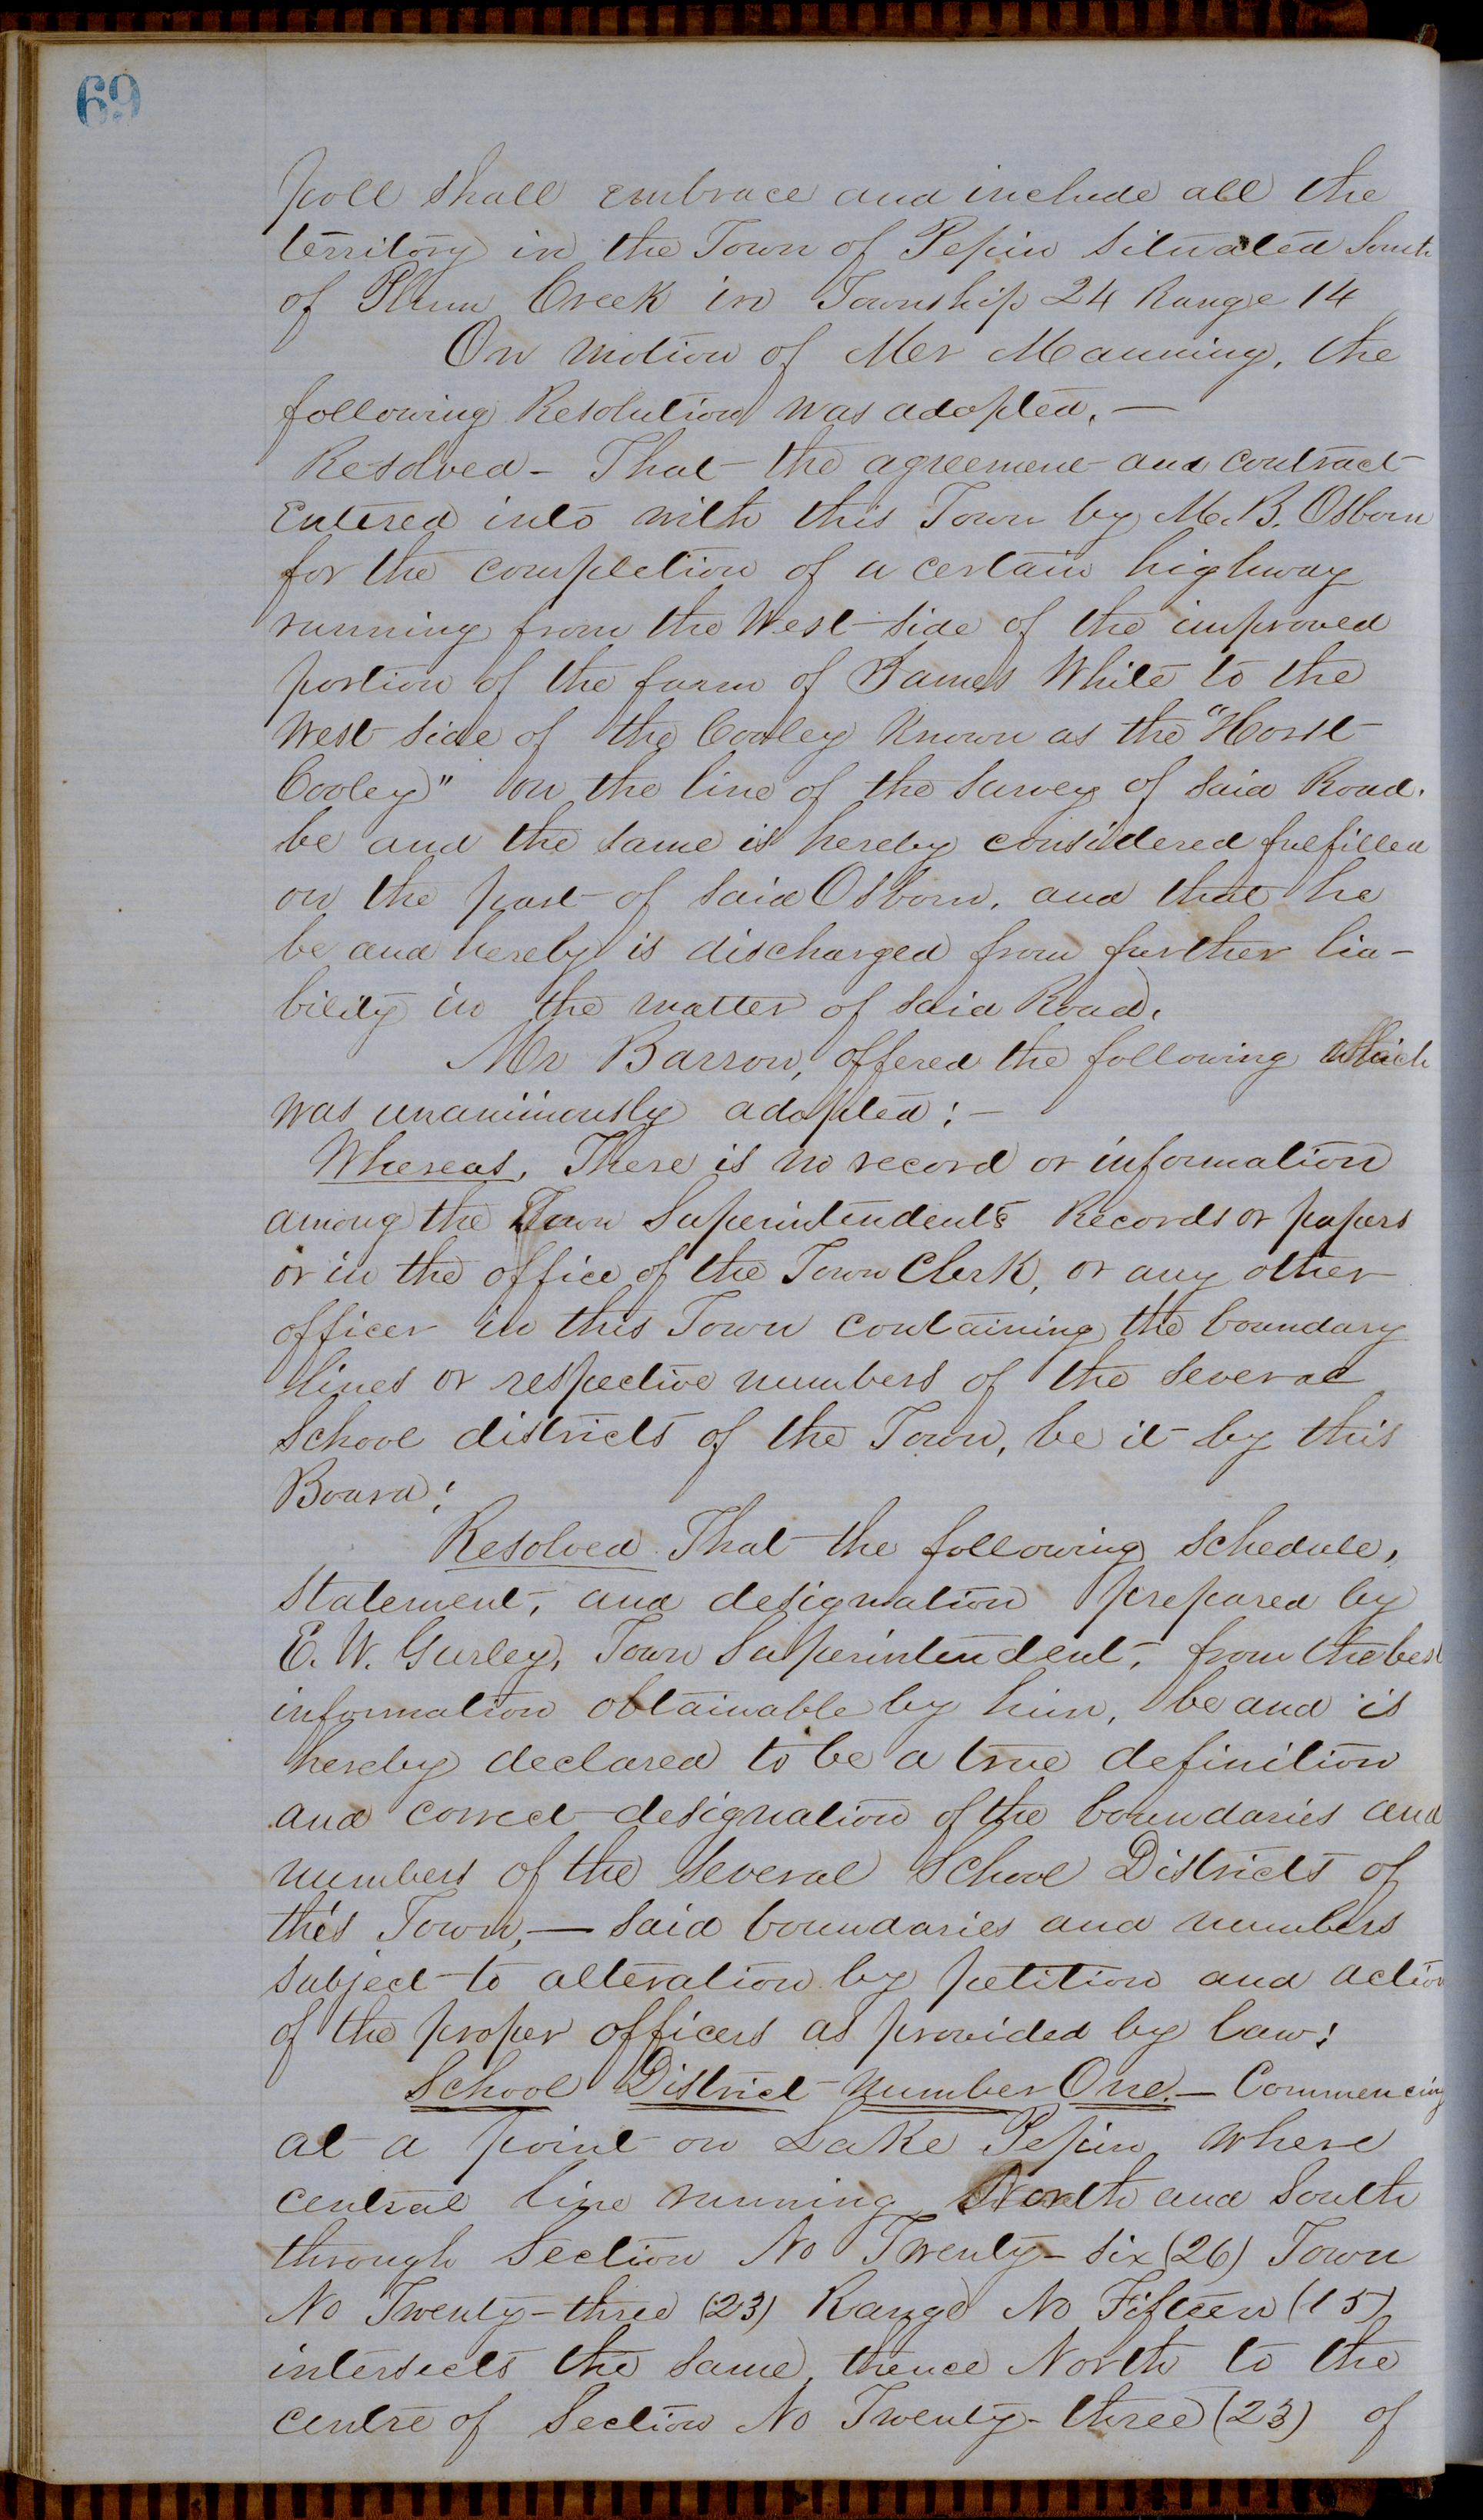 69
poll shall embrace and include all the
territory in the Town of Pepin situated South
of Plum Creek in Township 24 Range 14
On motion of Mr Manning, the
following Resolution was adopted. —
Resolved - That the agreement and contract
Entered into with this Town by M. B. Osborn
for the completion of a certain highway
running from the West side of the improved
portion of the farm of James White to the
West side of the Cooley Known as the "Horse
Cooley" on the line of the Survey of said Road.
be and the same is hereby considered fulfilled
on the part of said Osborn, and that he
be and hereby is discharged from further lia-
bility in the matter of said Road.
Mr Barron, offered the following which
was unanimously adopted: —
Whereas, There is no record or information
among the Town Superintendents Records or papers
or in the office of the Town Clerk, or any other
officer in this Town containing the boundary
lines or respective numbers of the several
School districts of the Town, be it by this
Board:
Resolved That the following schedule,
statement, and designation prepared by
E. W. Gurley, Town Superintendent, from the best
information obtainable by him, be and is
hereby declared to be a true definition
and correct designation of the boundaries and
numbers of the several School Districts of
this Town, — said boundaries and numbers
subject to alteration by petition and action
of the proper officers as provided by law:
School District number One. — Commencing
at a point on Lake Pepin where
central line running North and South
through Section No Twenty-six (26) Town
No Twenty-three (23) Range No Fifteen (15)
intersects the same, thence North to the
centre of Section No Twenty-three (23) of